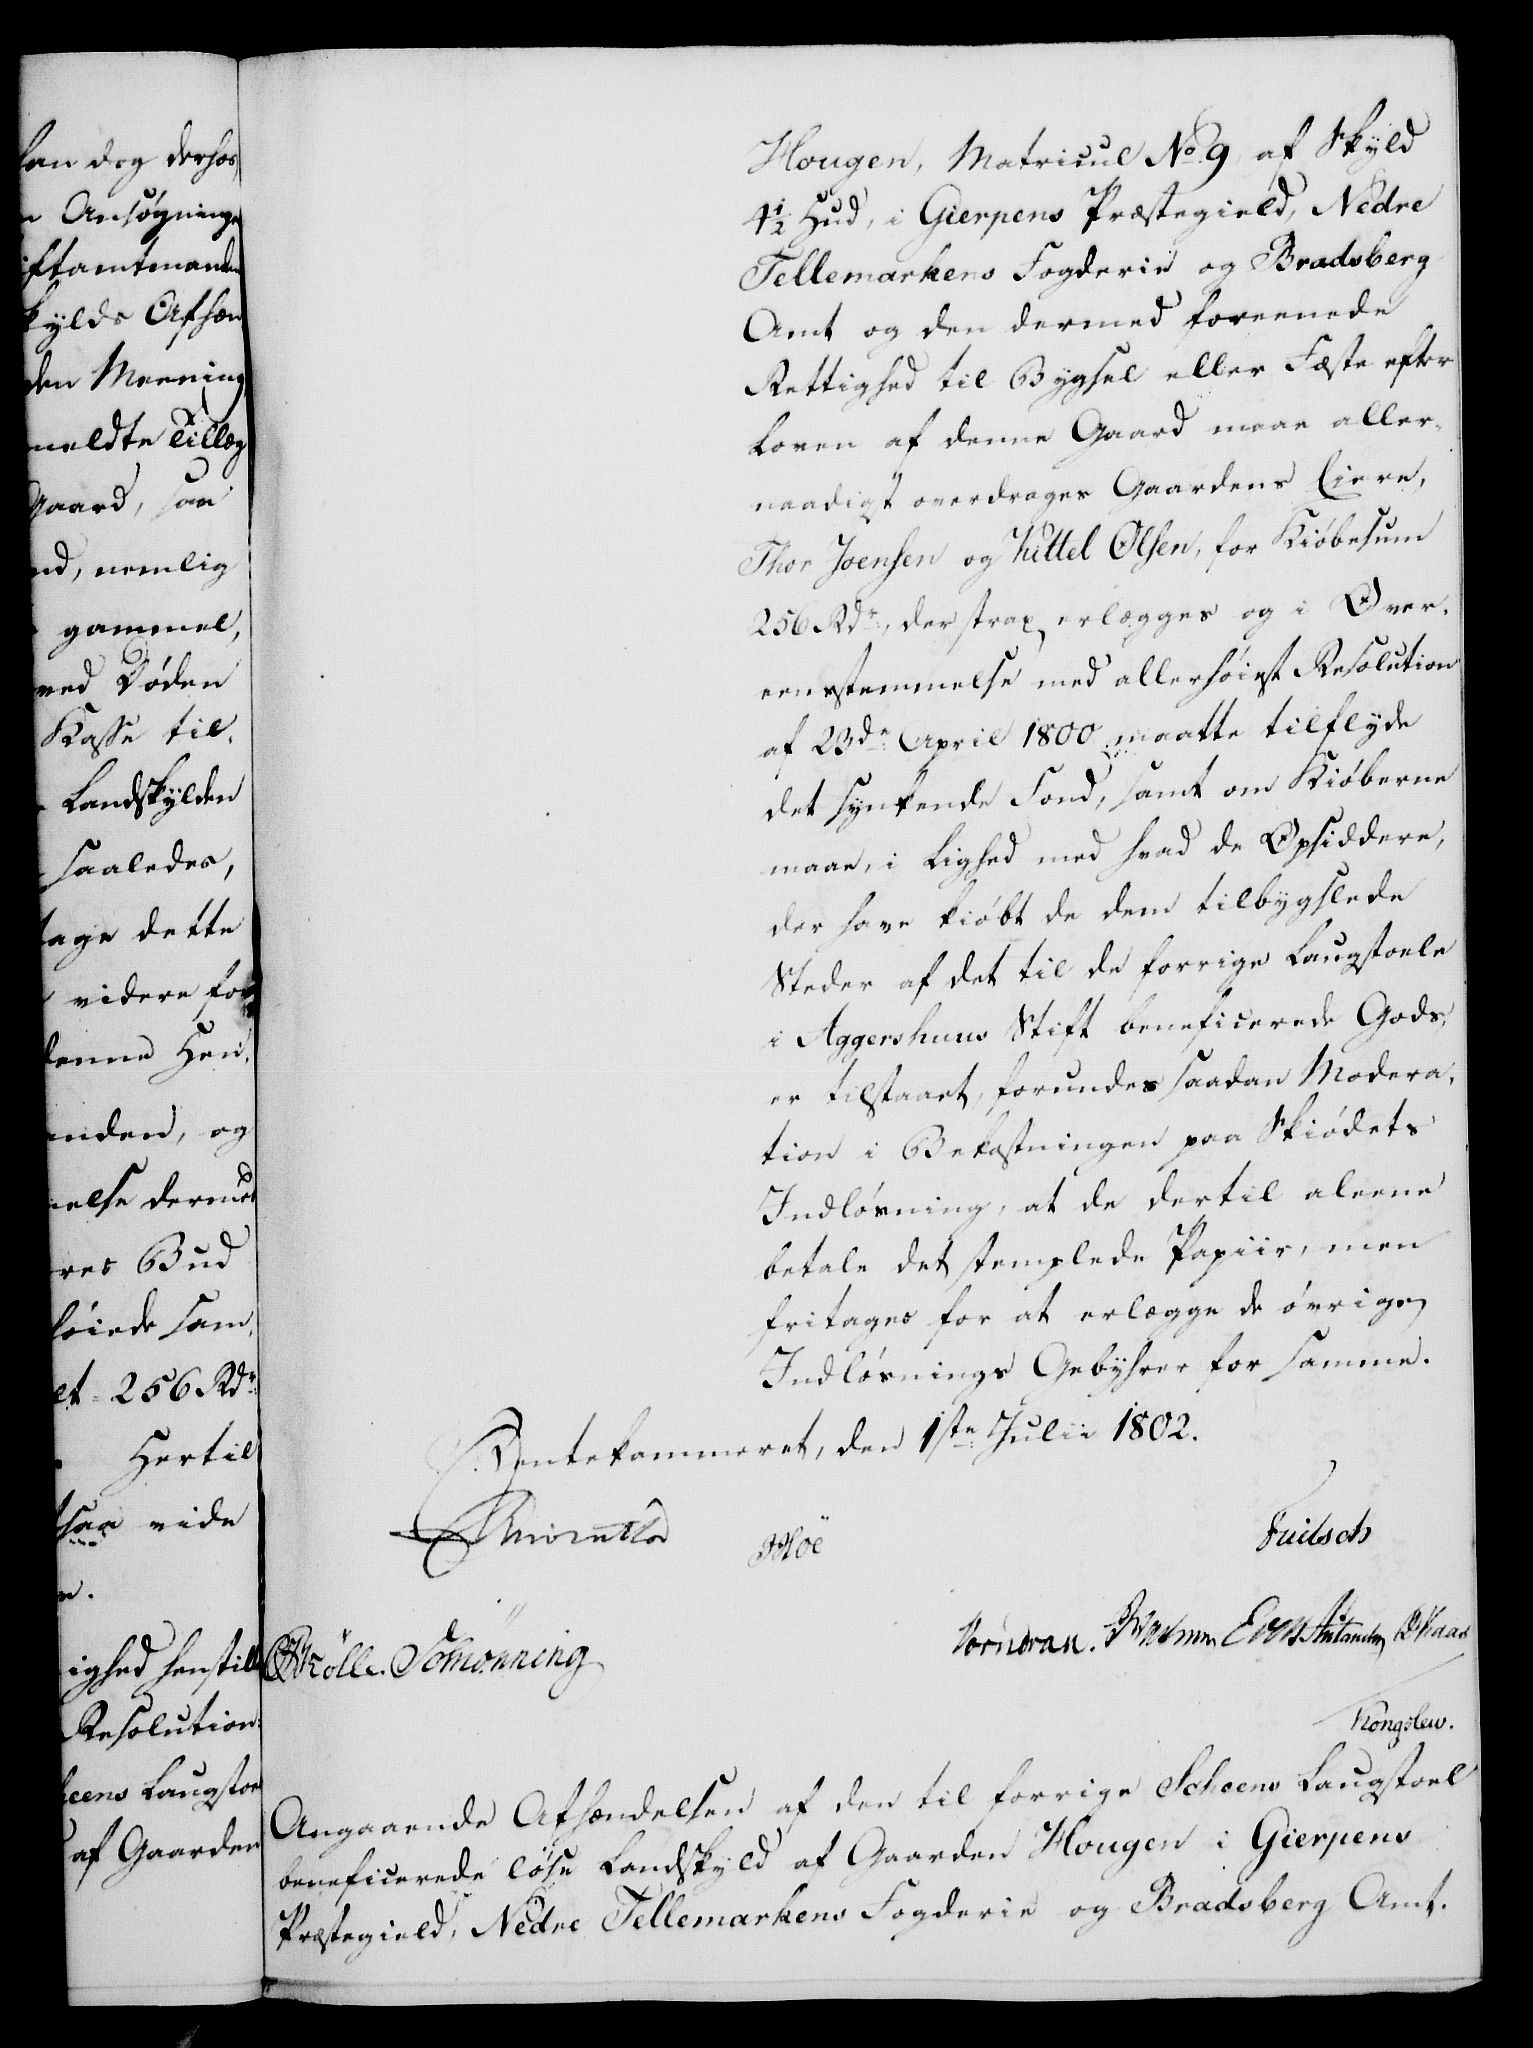 lan dog derhos,
Ansøgninge
iftamtmanden
kylds Afhæn
den Meening
meldte Tillæg
Gaard, saa
nd, nemlig
gammel,
ved Døden
Kasse til,
Landskylden
saaledes,
tage dette
videre for
denne Hen,
nden, og
nelse dermed
res Bud
høiede sam,
let 256 Rdr:
Hertil
saa vide
e.
ighed henstille
Resolution:
eens Laugstoe
af Gaarden
Hougen, Matricul No. 9 af Skyld
4½ Hud, i Gierpens Præstegield, Nedre
Tellemarkens Fogderie og Bradsberg
Amt og den dermed foreenede
Rettighed til Bygsel eller Fæste efter
Loven af denne Gaard maae aller-
naadigst overdrages Gaardens Eiere,
Thor Joensen og Kittel Olsen, for Kiøbesum
256 Rdr:, der strax erlægges og i Over-
eensstemmelse med allerhøiest Resolution
af 23de April 1800 maatte tilflyde
det synkende Fond, samt om Kiøberne
maae, i Lighed med hvad de Opsiddere,
der have kiøbt de dem tilbygslede
Steder af det til de forrige Laugstoele
i Aggershuus Stift beneficerede Gods,
er tilstaaet, forundes saadan Modera-
tion i Bekostningen paa Skiødets
Indløsning, at de dertil aleene
betale det stemplede Papiir, men
fritages for at erlægge de øvrige
Indløsnings Gebyhrer for samme.
Rentekammeret, den 1ste Julii 1802.
Moë
Fuilsch
Vorndran.
Skaas
Mölle. Schönning
Kongslew.
Angaaende Afhændelsen af den til forrige Scheens Laugstoel
beneficerede løse Landskyld af Gaarden Hougen i Gierpens
Præstegield, Nedre Tellemarkens Fogderie og Bradsberg Amt.